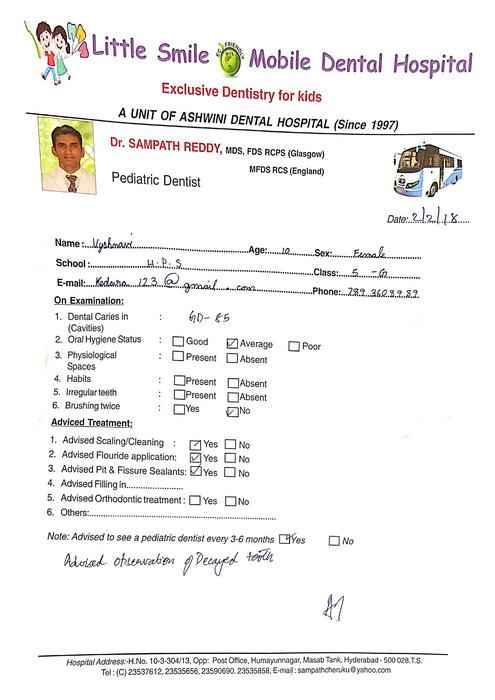 Little Smile ECO FRIENDLY Mobile Dental Hospital
Exclusive Dentistry for kids
A UNIT OF ASHWINI DENTAL HOSPITAL (Since 1997)
Dr. SAMPATH REDDY, MDS, FDS RCPS (Glasgow)
MFDS RCS (England)
Pediatric Dentist
Date: 2/2/18
Name: Vyshnavi Age: 10 Sex: Female
School: H.P.S Class: 5 -G
E-mail: 123@gmail.com Phone:
On Examination:
1. Dental Caries in : GD- 85
(Cavities)
2. Oral Hygiene Status : Good Average Poor
3. Physiological : Present Absent
Spaces
4. Habits : Present Absent
5. Irregular teeth : Present Absent
6. Brushing twice : Yes No
Adviced Treatment:
1. Advised Scaling/Cleaning : Yes No
2. Advised Flouride application: Yes No
3. Advised Pit & Fissure Sealants: Yes No
4. Advised Filling in
5. Advised Orthodontic treatment : Yes No
6. Others:
Note: Advised to see a pediatric dentist every 3-6 months Yes No
Advised observation of Decayed tooth
Hospital Address:-H.No. 10-3-304/13, Opp: Post Office, Humayunnagar, Masab Tank, Hyderabad - 500 028.T.S.
Tel : (C) 23537612, 23535656, 23590690. 23535858, E-mail : sampathcheruku@yahoo.com